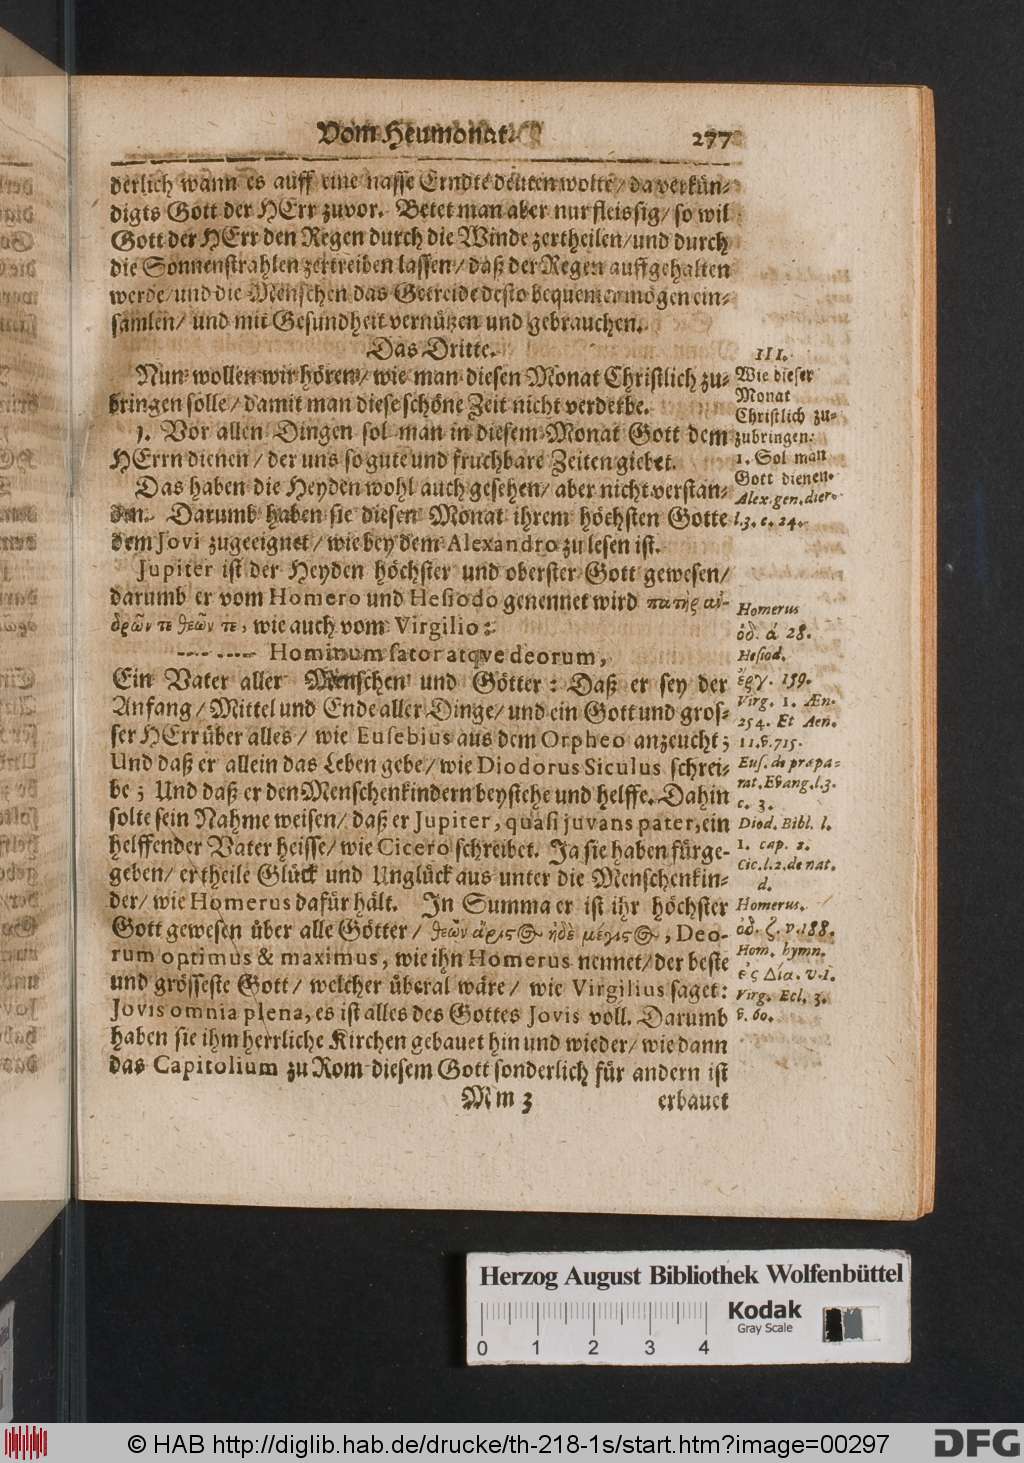 Vom Heumonat. 277
derlich wann es auff eine nasse Erndte deuten wolte/ da verkün-
digts Gott der HErr zuvor. Betet man aber nur fleissig/ so wil
Gott der HErr den Regen durch die Winde zertheilen/ und durch
die Sonnenstrahlen zertreiben lassen/ daß der Regen auffgehalten
werde/ und die Menschen das Getreide desto bequemer mögen ein-
samlen/ und mit Gesundheit vernützen und gebrauchen.
Das Dritte.
Nun wollen wir hören/ wie man diesen Monat Christlich zu-
bringen solle/ damit man diese schöne Zeit nicht verderbe.
1. Vor allen Dingen sol man in diesem Monat Gott dem
HErrn dienen/ der uns so gute und fruchbare Zeiten giebet.
Das haben die Heyden wohl auch gesehen/ aber nicht verstan-
den. Darumb haben sie diesen Monat ihrem höchsten Gotte
dem Jovi zugeeignet/ wie bey dem Alexandro zu lesen ist.
Jupiter ist der Heyden höchster und oberster Gott gewesen/
darumb er vom Homero und Hesiodo genennet wird πατὴρ αν-
δρῶν τε θεῶν τε, wie auch vom Virgilio:
--- ---- Hominum sator atqve deorum,
Ein Vater aller Menschen und Götter: Daß er sey der
Anfang/ Mittel und Ende aller Dinge/ und ein Gott und gros-
ser HErr über alles/ wie Eusebius aus dem Orpheo anzeucht;
Und daß er allein das Leben gebe/ wie Diodorus Siculus schrei-
be; Und daß er den Menschenkindern beystehe und helffe. Dahin
solte sein Nahme weisen/ daß er Jupiter, quasi juvans pater, ein
helffender Vater heisse/ wie Cicero schreibet. Ja sie haben fürge-
geben/ er theile Glück und Unglück aus unter die Menschenkin-
der/ wie Homerus dafür hält. In Summa er ist ihr höchster
Gott gewesen über alle Götter/ θεῶν ἄριστος ἠδὲ μέγιστος, Deo-
rum optimus & maximus, wie ihn Homerus nennet/ der beste
und grösseste Gott/ welcher überal wäre/ wie Virgilius saget:
Jovis omnia plena, es ist alles des Gottes Jovis voll. Darumb
haben sie ihm herrliche Kirchen gebauet hin und wieder/ wie dann
das Capitolium zu Rom diesem Gott sonderlich für andern ist
Mm 3 erbauet
III.
Wie dieser
Monat
Christlich zu-
zubringen.
1. Sol man
Gott dienen.
Alex. gen. dier.
l. 3. c. 24.
Homerus
ὀδ. ά 28.
Hesiod.
ἐργ. 159.
Virg. 1. Æn.
254. Et Aen.
11. v. 715.
Eus. de præpa-
rat. Evang. l. 3.
c. 3.
Diod. Bibl. l.
1. cap. 2.
Cic. l. 2. de nat.
d.
Homerus.
ὀδ. ζ. v. 188.
Hom. hymn.
ἐς Δία. v. 1.
Virg. Ecl. 3.
v. 60.
Herzog August Bibliothek Wolfenbüttel
0 1 2 3 4
Kodak
Gray Scale
© HAB http://diglib.hab.de/drucke/th-218-1s/start.htm?image=00297
DFG